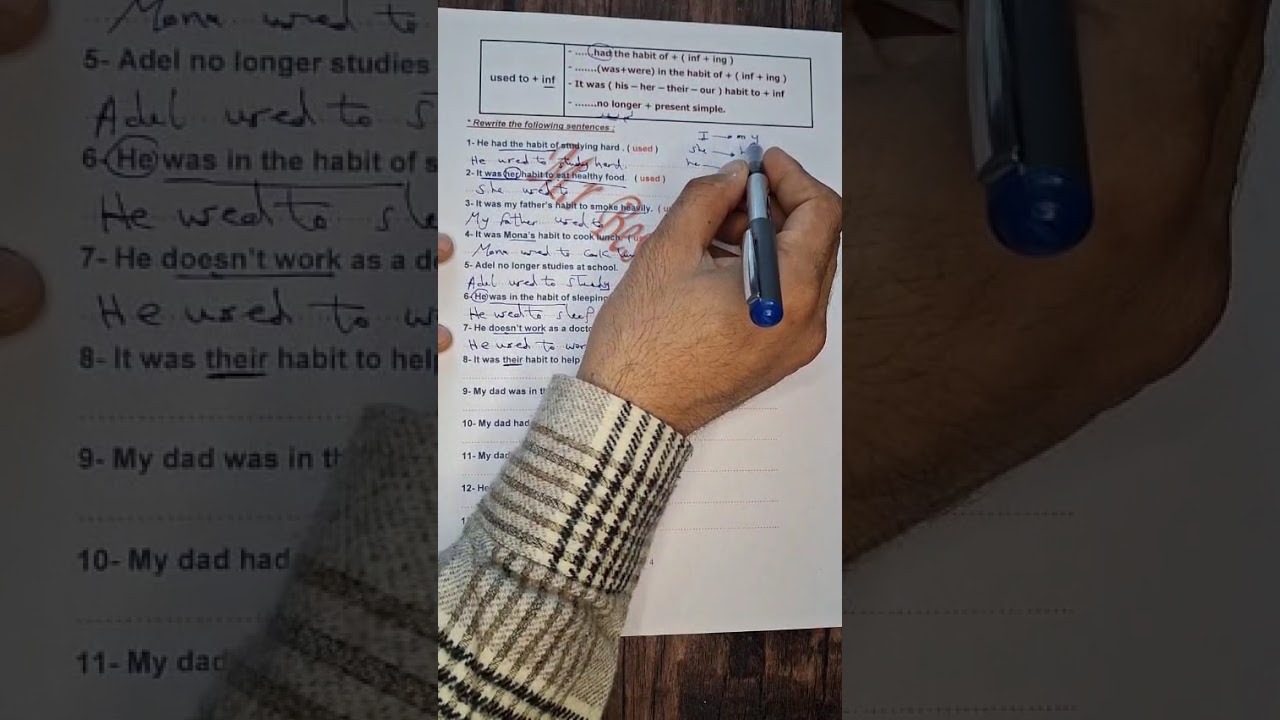 used to + inf
- .....had the habit of + ( inf + ing )
- .......(was+were) in the habit of + ( inf + ing )
- It was ( his – her – their – our ) habit to + inf
- .......no longer + present simple.
* Rewrite the following sentences :
I → my
she →
he
1- He had the habit of studying hard . ( used )
He used to study hard.
2- It was her habit to eat healthy food. ( used )
She used to
3- It was my father's habit to smoke heavily.
My father used to
4- It was Mona's habit to cook lunch.
Mona used to cook
5- Adel no longer studies at school.
Adel used to study
6- He was in the habit of sleeping
He used to sleep
7- He doesn't work as a
He used to
8- It was their habit to help
9- My dad was in
10- My dad had
11- My
12-
4
Mona used to
5- Adel no longer studies
Adel used to
6- He was in the habit of
He used to
7- He doesn't work as a
He used to
8- It was their habit to
9- My dad was in
10- My dad had
11- My